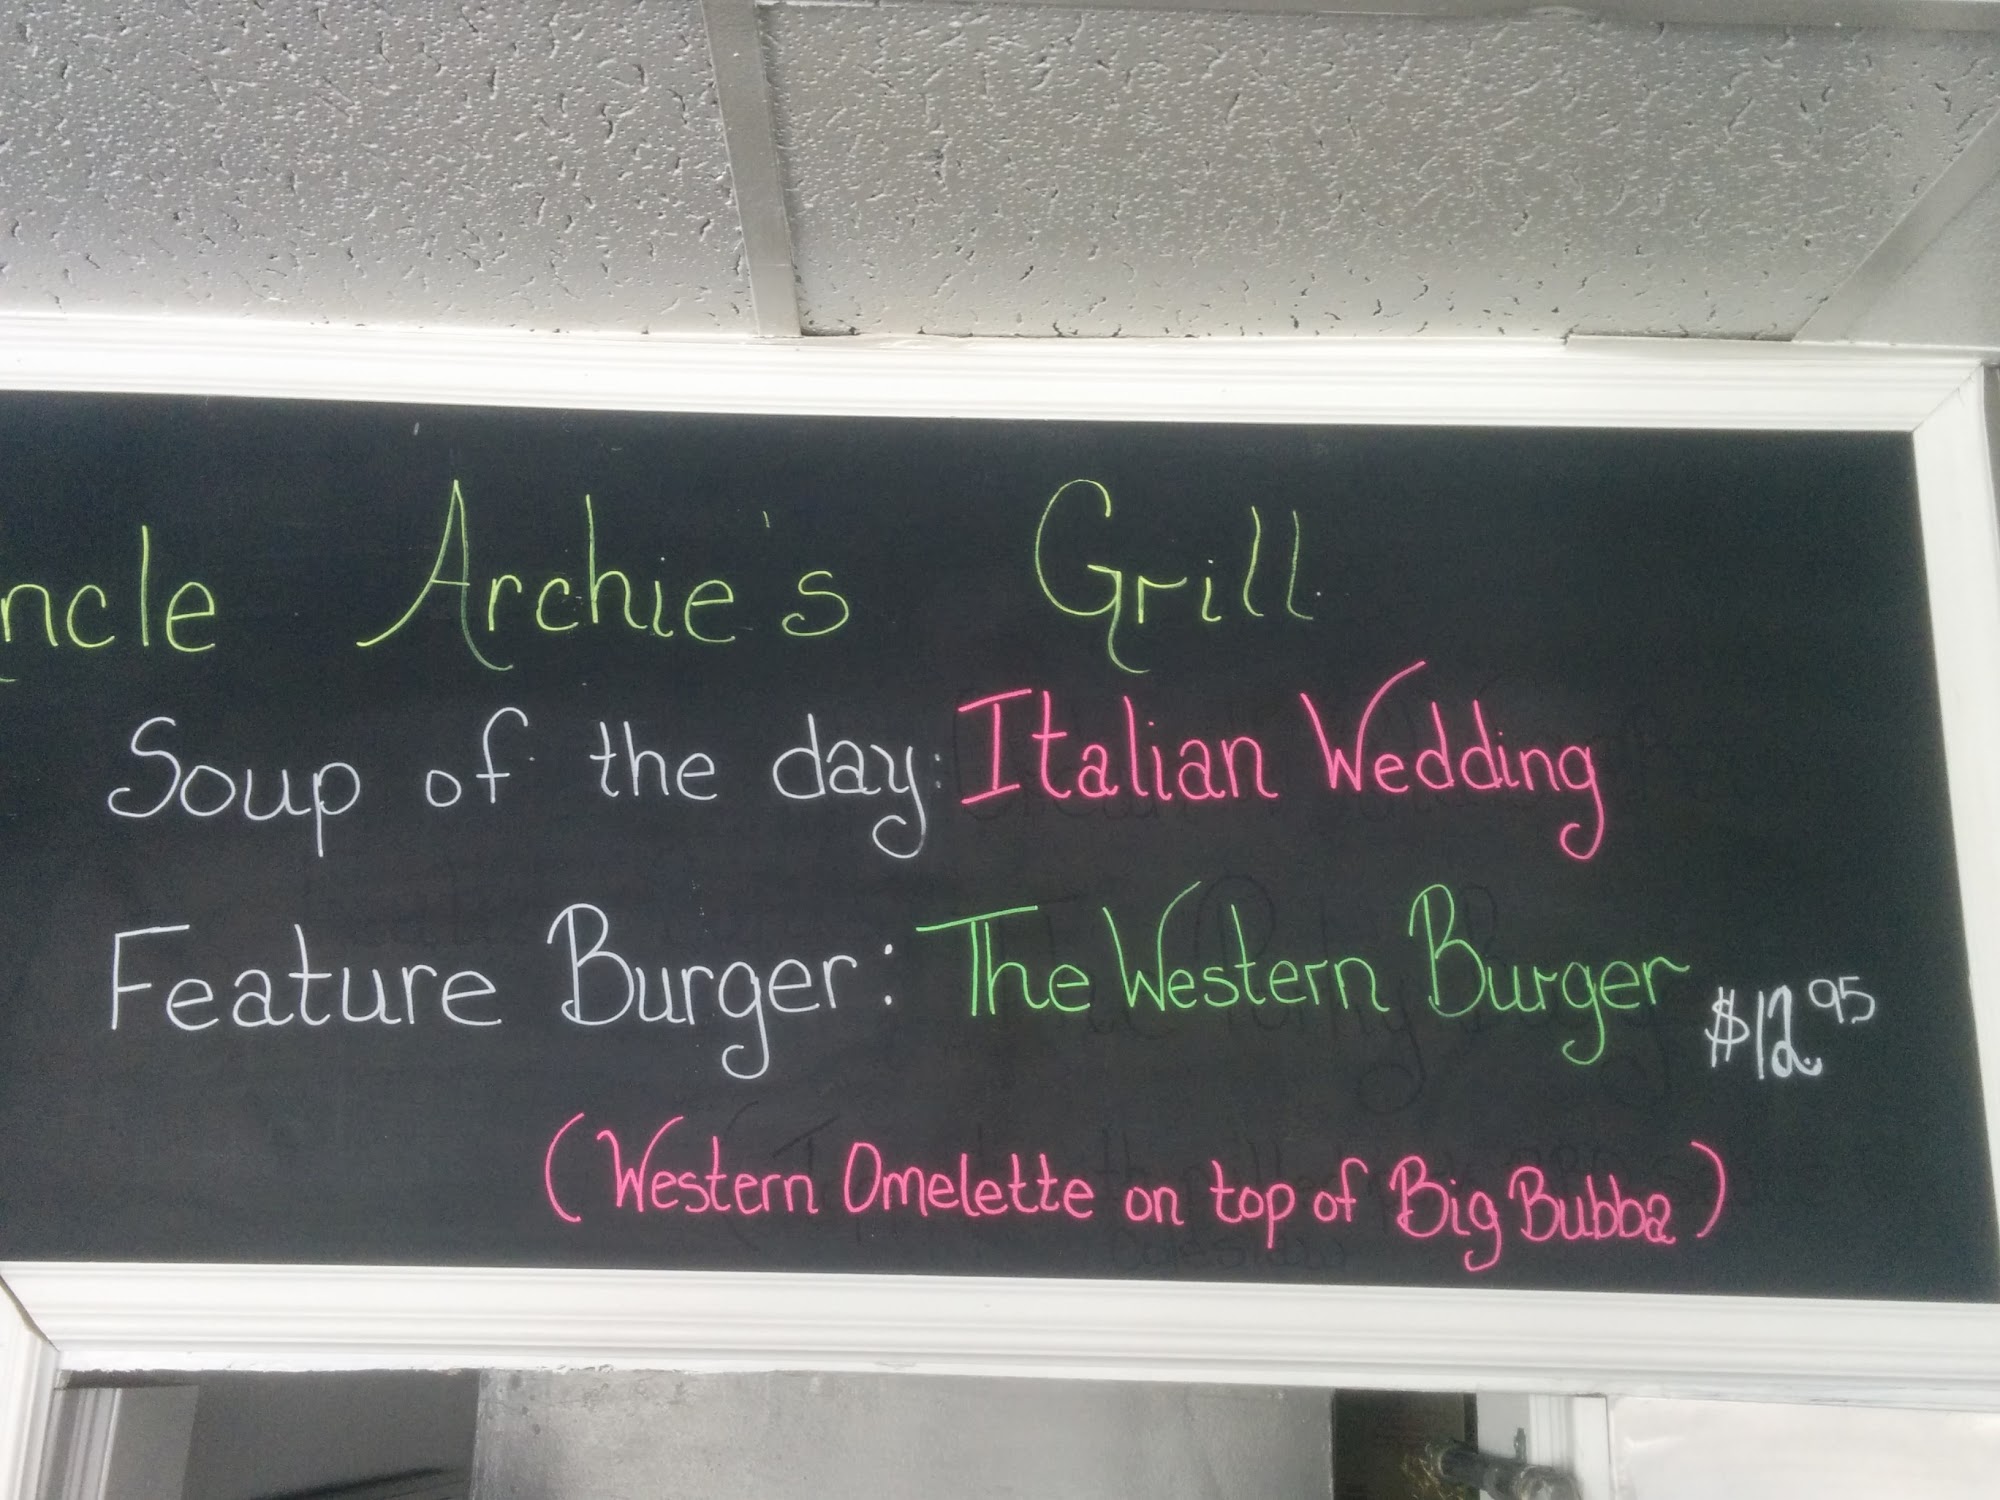 ncle Archie's Grill
Soup of the day: Italian Wedding
Feature Burger: The Western Burger $12.95
(Western Omelette on top of Big Bubba)